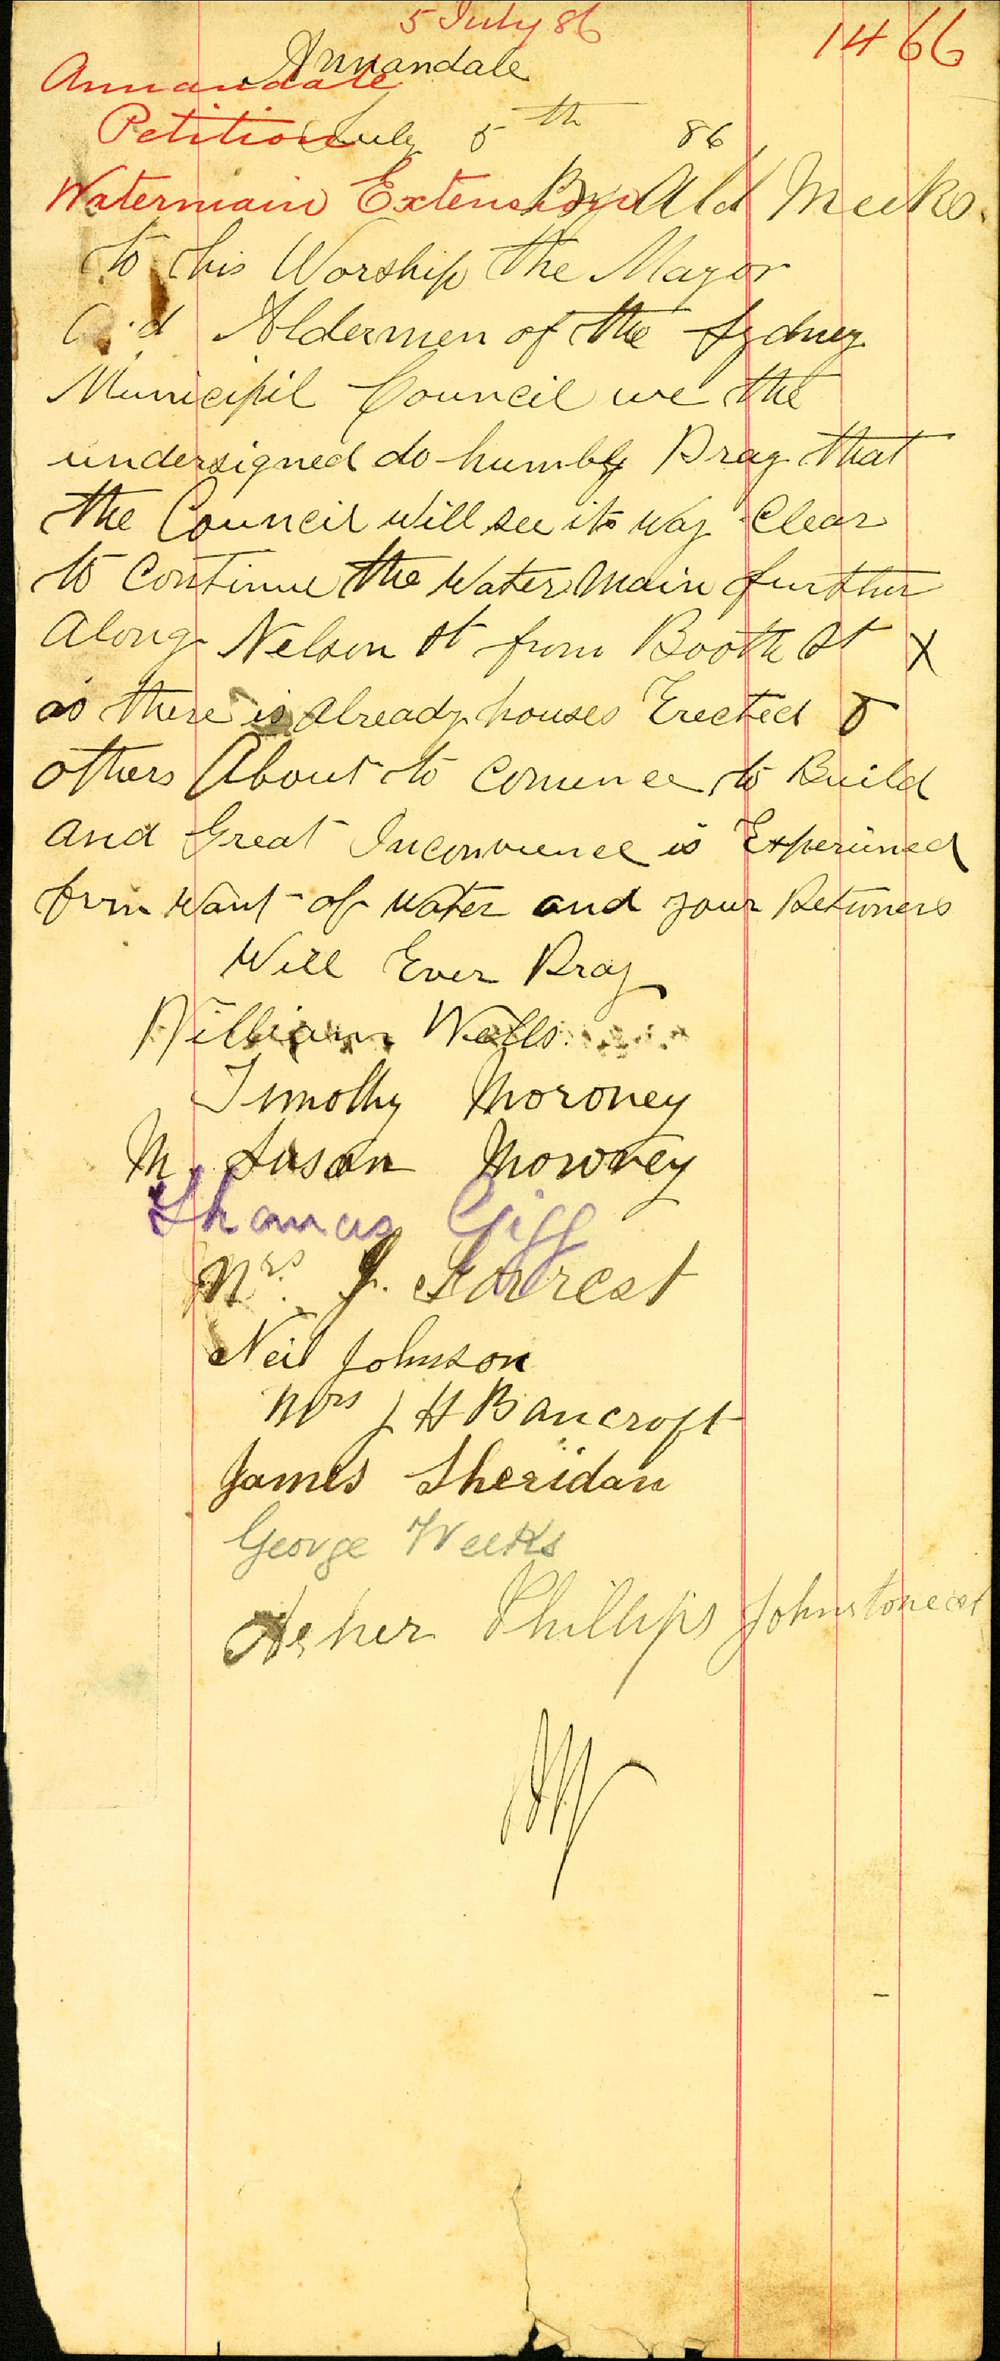 5 July 86
1466
Annandale
Annandale
Petition July 5th 86
Watermain Extension By Ald Meeks.
to his Worship the Mayor
a d Aldermen of the Sydney
Municipil Council we the
undersigned do humbly Pray that
the Council will see its way Clear
to Continue the Water Main further
Along Nelson St from Booth St X
as there is already houses Erected &
others About to Comence to Build
and Great Inconvience is Experined
from want of water and your Petioners
Will Ever Pray
William Wells
Timothy Moroney
M Susan Moroney
Thomas Giff
Mrs. J. Forrest
Neil Johnson
Mrs J H Bancroft
James Sheridan
George Weeks
Asher Phillips Johnstone st